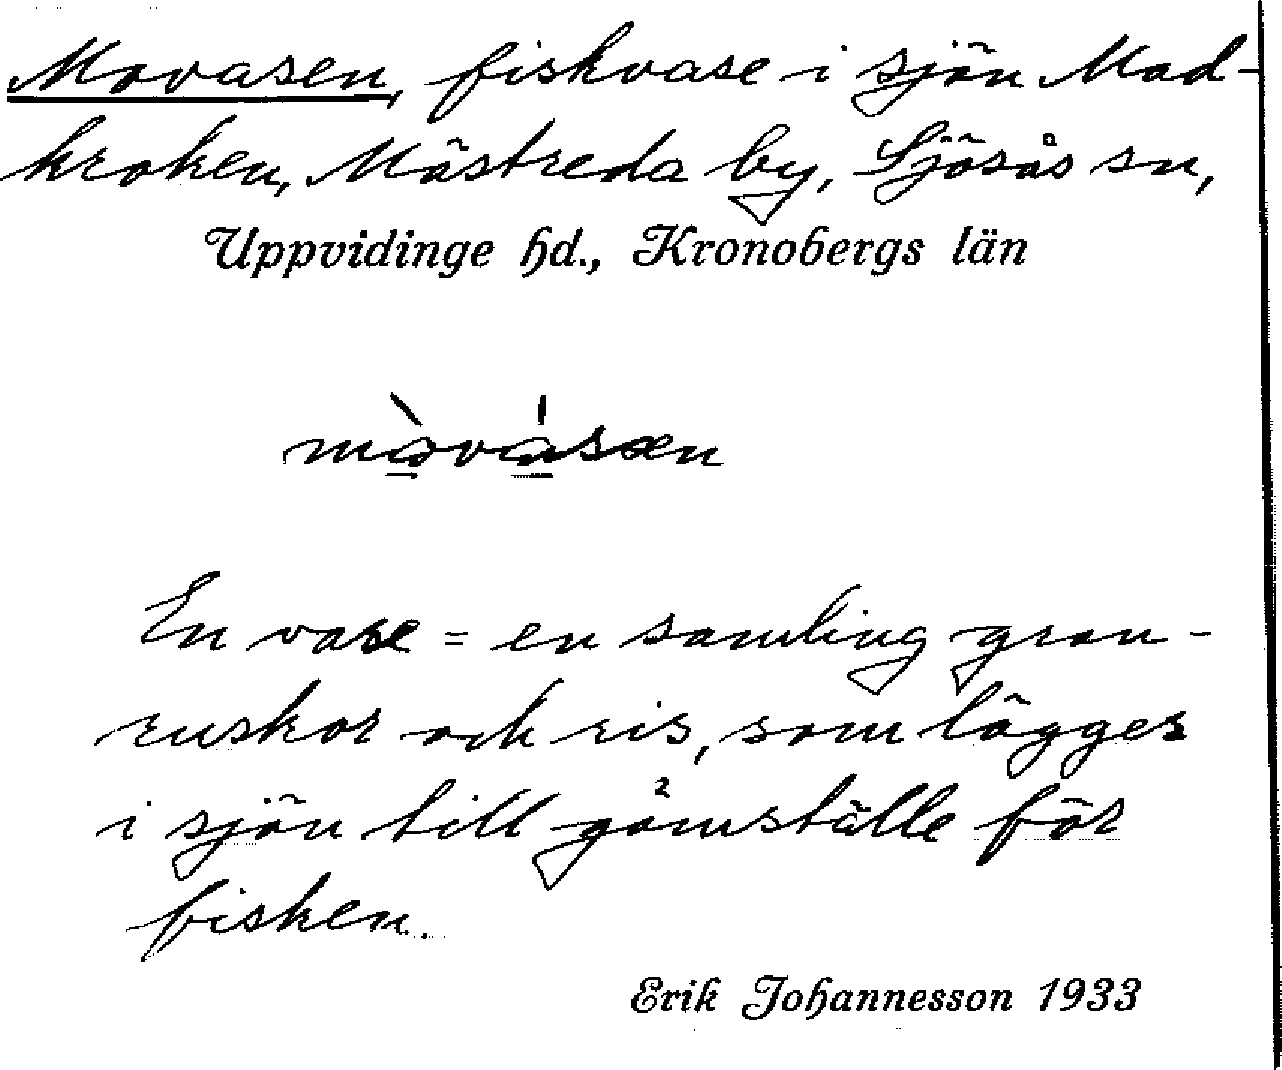 Movasen, fiskvase i sjön Mad-
kroken, Mästreda by, Sjösås sn,
Uppvidinge hd., Kronobergs län
mòvásen
En vase = en samling gran-
ruskor och ris, som lägges
i sjön till gömställe för
fisken.
Erik Johannesson 1933